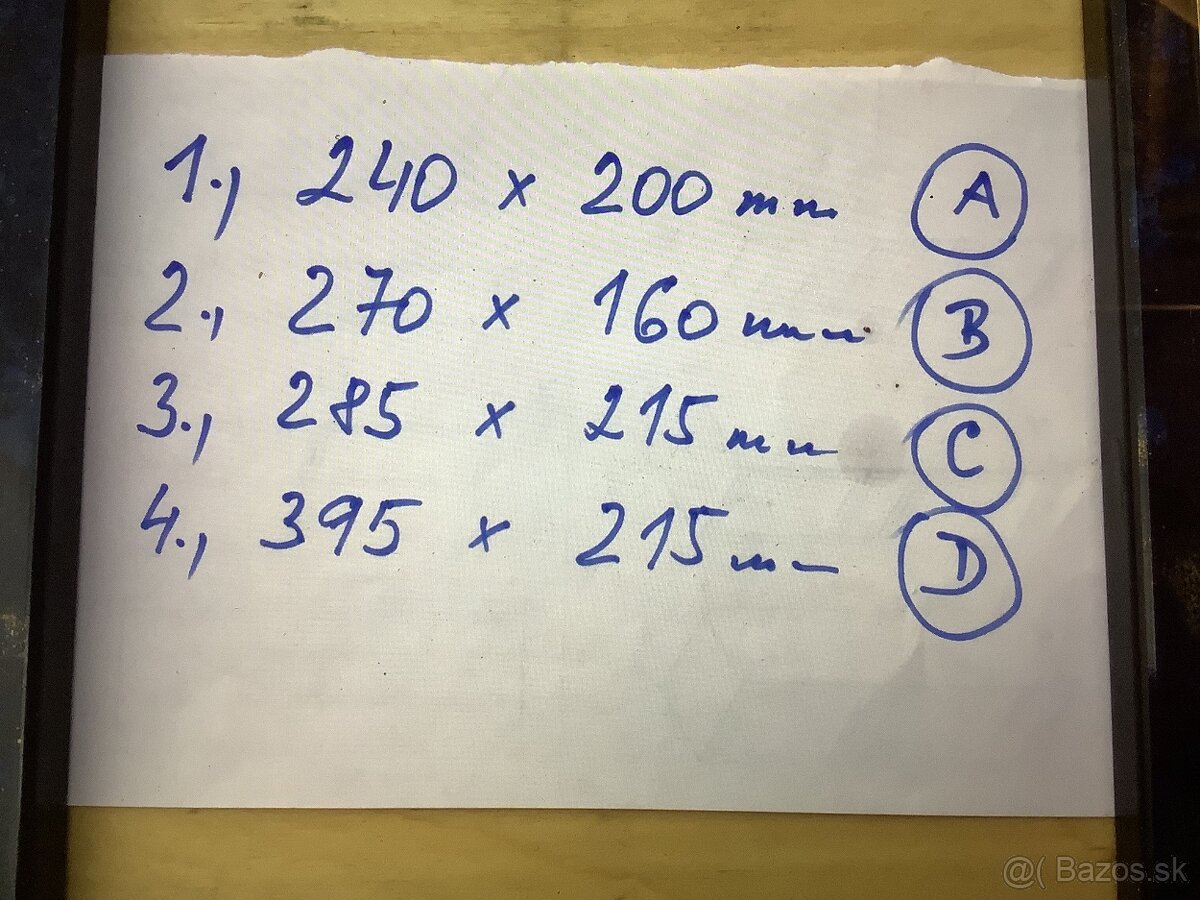 1., 240 x 200 mm A
2., 270 x 160 mm B
3., 285 x 215 mm C
4., 395 x 215 mm D
@( Bazos.sk